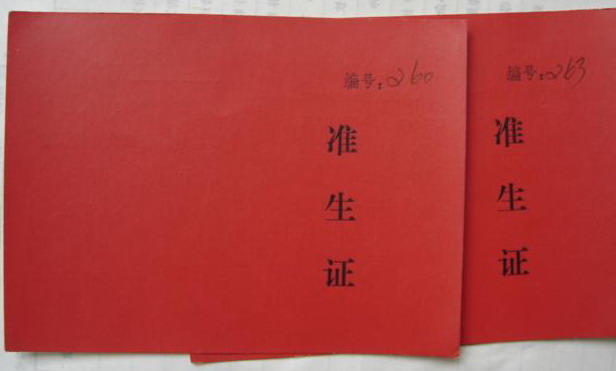 编号:260
准
生
证
编号:263
准
生
证